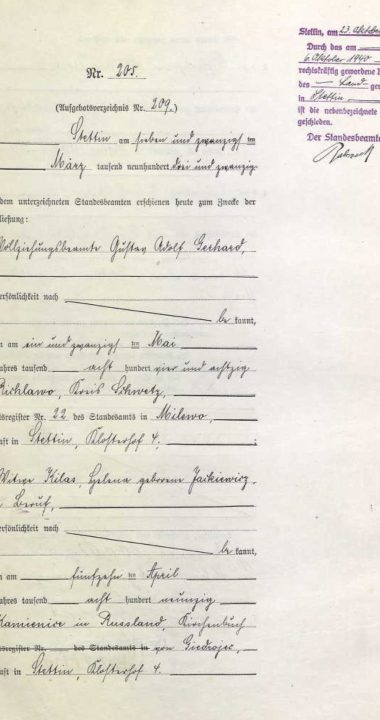 Nr. 205.
(Aufgebotsverzeichnis Nr. 209.)
Stettin am sieben und zwanzigsten
März tausend neunhundert drei und zwanzig
dem unterzeichneten Standesbeamten erschienen heute zum Zwecke der
ließung:
Vollziehungsbeamte Gustav Adolf Gerhard,
ersönlichkeit nach
be kannt,
n am ein und zwanzigsten Mai
ahres tausend acht hundert vier und achtzig
Kreis Schwetz,
sregister Nr. 22 des Standesamts in Milewo,
ft in Stettin, Klosterhof 4.
Witwe Kilas, Helena geborene Jaikiewicz,
Beruf,
ersönlichkeit nach
be kannt,
n am fünfzehn ten April
ahres tausend acht hundert neunzig
Kamienice in Russland, Kirchenbuch
sregister Nr. des Standesamts in von
ft in Stettin, Klosterhof 4.
Stettin, am 23. Oktober
Durch das am
6. Oktober 1940
rechtskräftig gewordene
des Land ge
in Stettin
ist die nebenbezeichnete
geschieden.
Der Standesbeamte